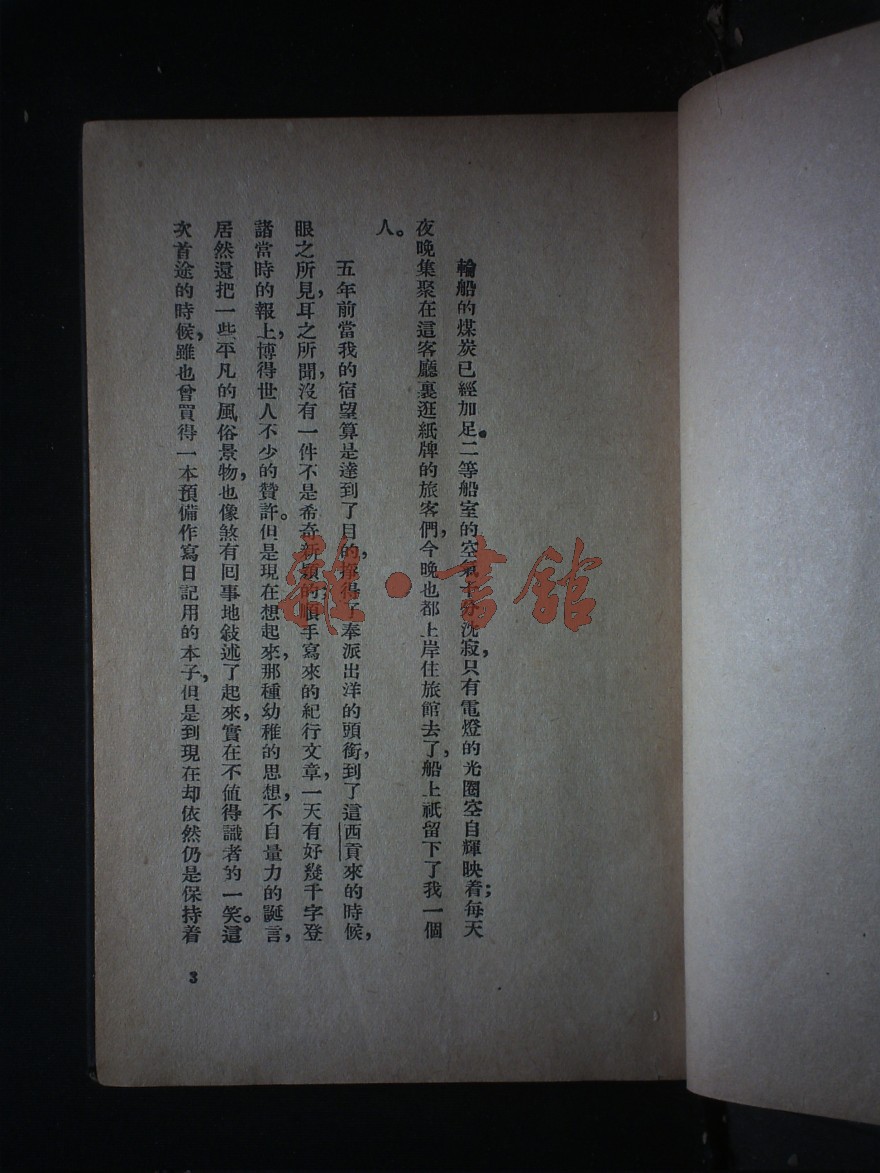 輪船的煤炭已經加足。二等船室的空氣十分沈寂，只有電燈的光圈空自輝映着；每天
夜晚集聚在這客廳裏逛紙牌的旅客們，今晚也都上岸住旅館去了，船上祇留下了我一個
人。
五年前當我的宿望算是達到了目的，擇得了奉派出洋的頭銜，到了這西貢來的時候，
眼之所見，耳之所聞，沒有一件不是希奇新穎的，順手寫來的紀行文章，一天有好幾千字登
諸當時的報上，博得世人不少的贊許。但是現在想起來，那種幼稚的思想，不自量力的誕言，
居然還把一些平凡的風俗景物，也像煞有回事地敍述了起來，實在不値得識者的一笑。這
次首途的時候，雖也曾買得一本預備作寫日記用的本子，但是到現在却依然仍是保持着
3
雜·書館